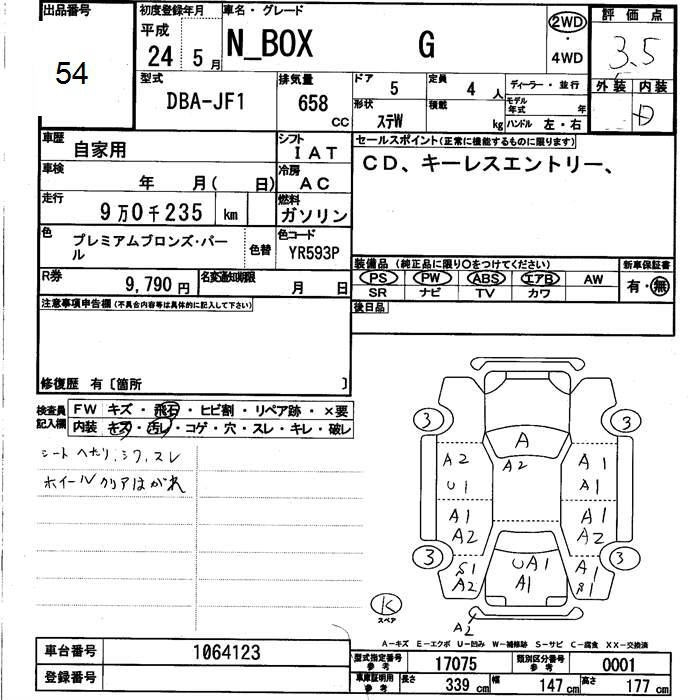 出品番号
54
初度登録年月
平成
24 5月
車名・グレード
N_BOX G
2WD
・
4WD
評価点
3.5
外装 内装
D
型式
DBA-JF1
排気量
658
CC
ドア 5
定員 4 人
形状 ステW
積載 kg
ディーラー・並行
モデル年式 年
ハンドル 左・右
車歴 自家用
シフト IAT
車検 年 月( 日)
冷房 AC
走行 9万0千235 km
燃料 ガソリン
色 プレミアムブロンズ・パール
色替
色コード YR593P
R券 9,790 円
名変通知期限 月 日
セールスポイント(正常に機能するものに限ります)
CD、キーレスエントリー、
装備品(純正品に限り〇をつけてください)
PS PW ABS エアB AW
SR ナビ TV カワ
新車保証書
有・無
後日品
注意事項申告欄(不具合内容等は具体的に記入して下さい)
修復歴 有〔箇所 〕
検査員記入欄
FW キズ・飛石・ヒビ割・リペア跡・×要
内装 キズ・汚レ・コゲ・穴・スレ・キレ・破レ
シート ヘタリ、シワ、スレ
ホイールクリアはがれ
3 3
A
A2 A2 A1
U1 A1
A1 A1
A2 A2
3 3
S1 UA1 A1
A2 A1 S1
K
スペア
A2
A-キズ E-エクボ U-凹み W-補修跡 S-サビ C-腐食 XX-交換済
車台番号 1064123
登録番号
型式指定番号参考 17075
類別区分番号参考 0001
車庫証明用参考 長さ 339 cm 幅 147 cm 高さ 177 cm